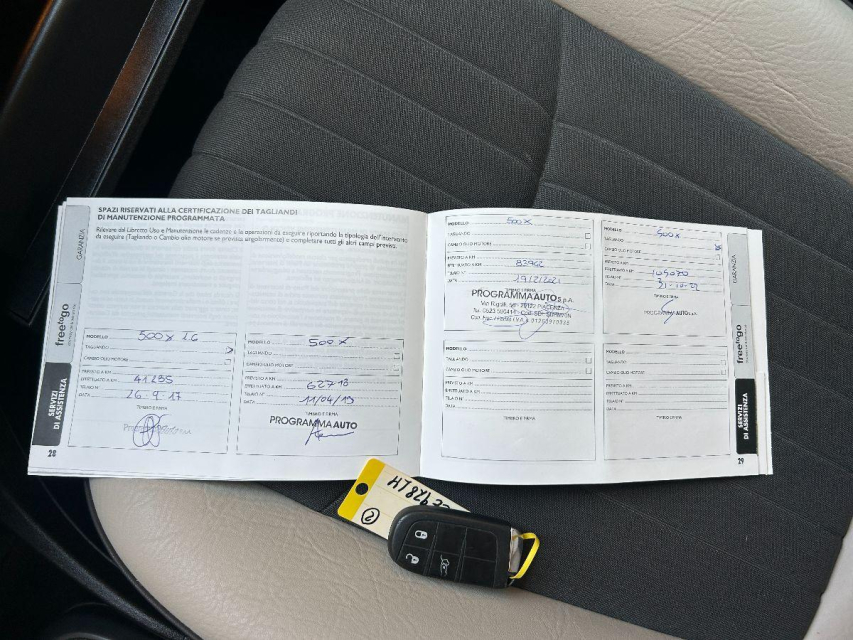 SPAZI RISERVATI ALLA CERTIFICAZIONE DEI TAGLIANDI
DI MANUTENZIONE PROGRAMMATA
Rilevare dal Libretto Uso e Manutenzione le cadenze e le operazioni da eseguire riportando la tipologia dell'intervento
da eseguire (Tagliando o Cambio olio motore se previsto singolarmente) e completare tutti gli altri campi previsti.
GARANZIA
freetogo
SERVIZI
DI ASSISTENZA
MODELLO 500X 1.6
TAGLIANDO
CAMBIO OLIO MOTORE
PREVISTO A KM
EFFETTUATO A KM 41.235
TELAIO N°
DATA 26.9.17
TIMBRO E FIRMA
28
MODELLO 500X
TAGLIANDO
CAMBIO OLIO MOTORE
PREVISTO A KM
EFFETTUATO A KM 62718
TELAIO N°
DATA 11/04/19
TIMBRO E FIRMA
PROGRAMMA AUTO
MODELLO 500X
TAGLIANDO
CAMBIO OLIO MOTORE
PREVISTO A KM
EFFETTUATO A KM 83962
TELAIO N°
DATA 19/2/2021
TIMBRO E FIRMA
PROGRAMMA AUTO S.p.A.
MODELLO 500X
TAGLIANDO
CAMBIO OLIO MOTORE
PREVISTO A KM
EFFETTUATO A KM 105070
TELAIO N°
DATA 31-10-22
TIMBRO E FIRMA
PROGRAMMA AUTO
MODELLO
TAGLIANDO
CAMBIO OLIO MOTORE
PREVISTO A KM
EFFETTUATO A KM
TELAIO N°
DATA
TIMBRO E FIRMA
MODELLO
TAGLIANDO
CAMBIO OLIO MOTORE
PREVISTO A KM
EFFETTUATO A KM
TELAIO N°
DATA
TIMBRO E FIRMA
GARANZIA
freetogo
SERVIZI
DI ASSISTENZA
29